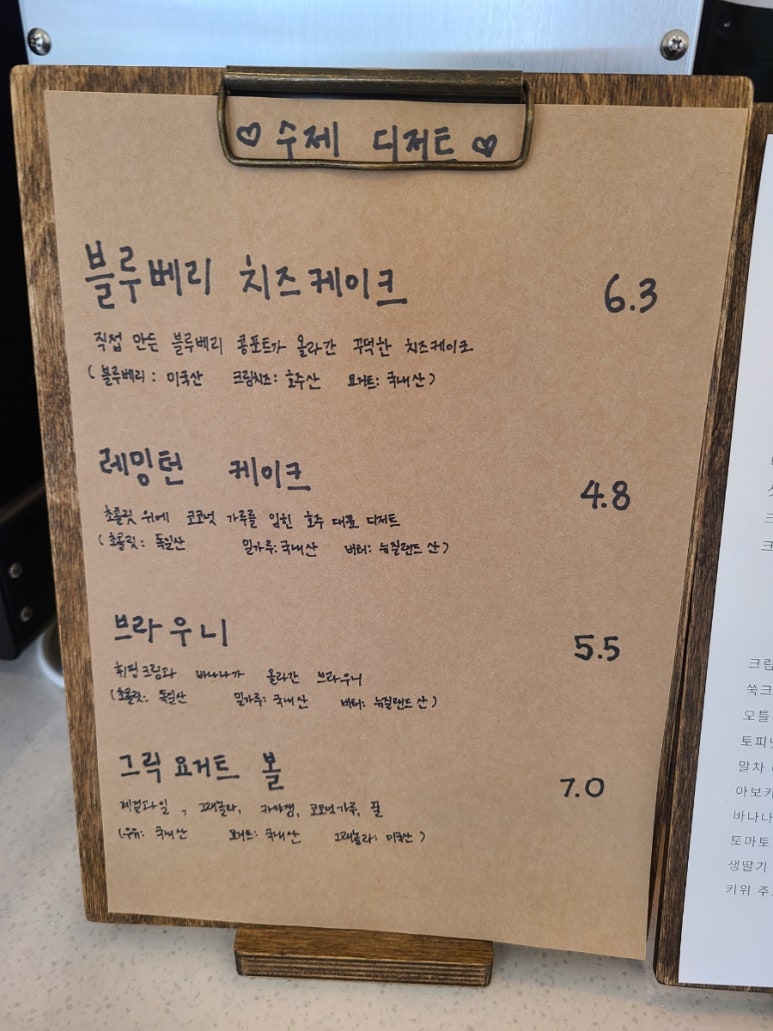 ♡ 수제 디저트 ♡
블루베리 치즈케이크 6.3
직접 만든 블루베리 콩포트가 올라간 꾸덕한 치즈케이크
(블루베리: 미국산 크림치즈: 호주산 요거트: 국내산)
레밍턴 케이크 4.8
초콜릿 위에 코코넛 가루를 입힌 호주 대표 디저트
(초콜릿: 독일산 밀가루: 국내산 버터: 뉴질랜드산)
브라우니 5.5
휘핑크림과 바나나가 올라간 브라우니
(초콜릿: 독일산 밀가루: 국내산 버터: 뉴질랜드산)
그릭요거트 볼 7.0
제철과일, 그래놀라, 카야잼, 코코넛가루, 꿀
(우유: 국내산 요거트: 국내산 그래놀라: 미국산)
크림
쑥크
오틀
토피넛
말차
아보카
바나나
토마토
생딸기
키위 주